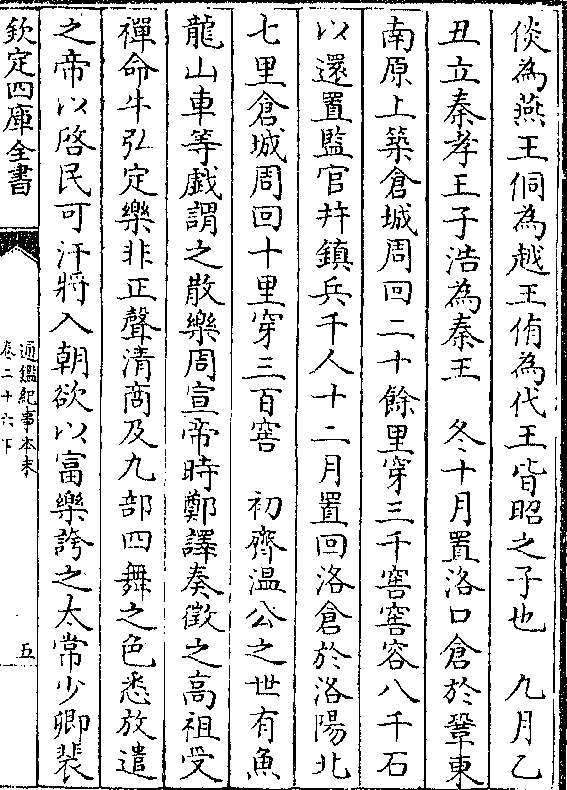 倓為燕王侗為越王侑為代王皆昭之子也　九月乙
丑立秦孝王子浩為秦王　冬十月置洛口倉於鞏東
南原上築倉城周回二十餘里穿三千窖窖容八千石
以還置監官并鎮兵千人十二月置回洛倉於洛陽北
七里倉城周回十里穿三百窖　初齊温公之世有魚
龍山車等戯謂之散樂周宣帝時鄭譯奏徵之高祖受
禪命牛弘定樂非正聲清商及九部四舞之色悉放遣
之帝以啓民可汗將入朝欲以富樂誇之太常少卿裴
欽定四庫全書
通鑑紀事本末
卷二十六下
五